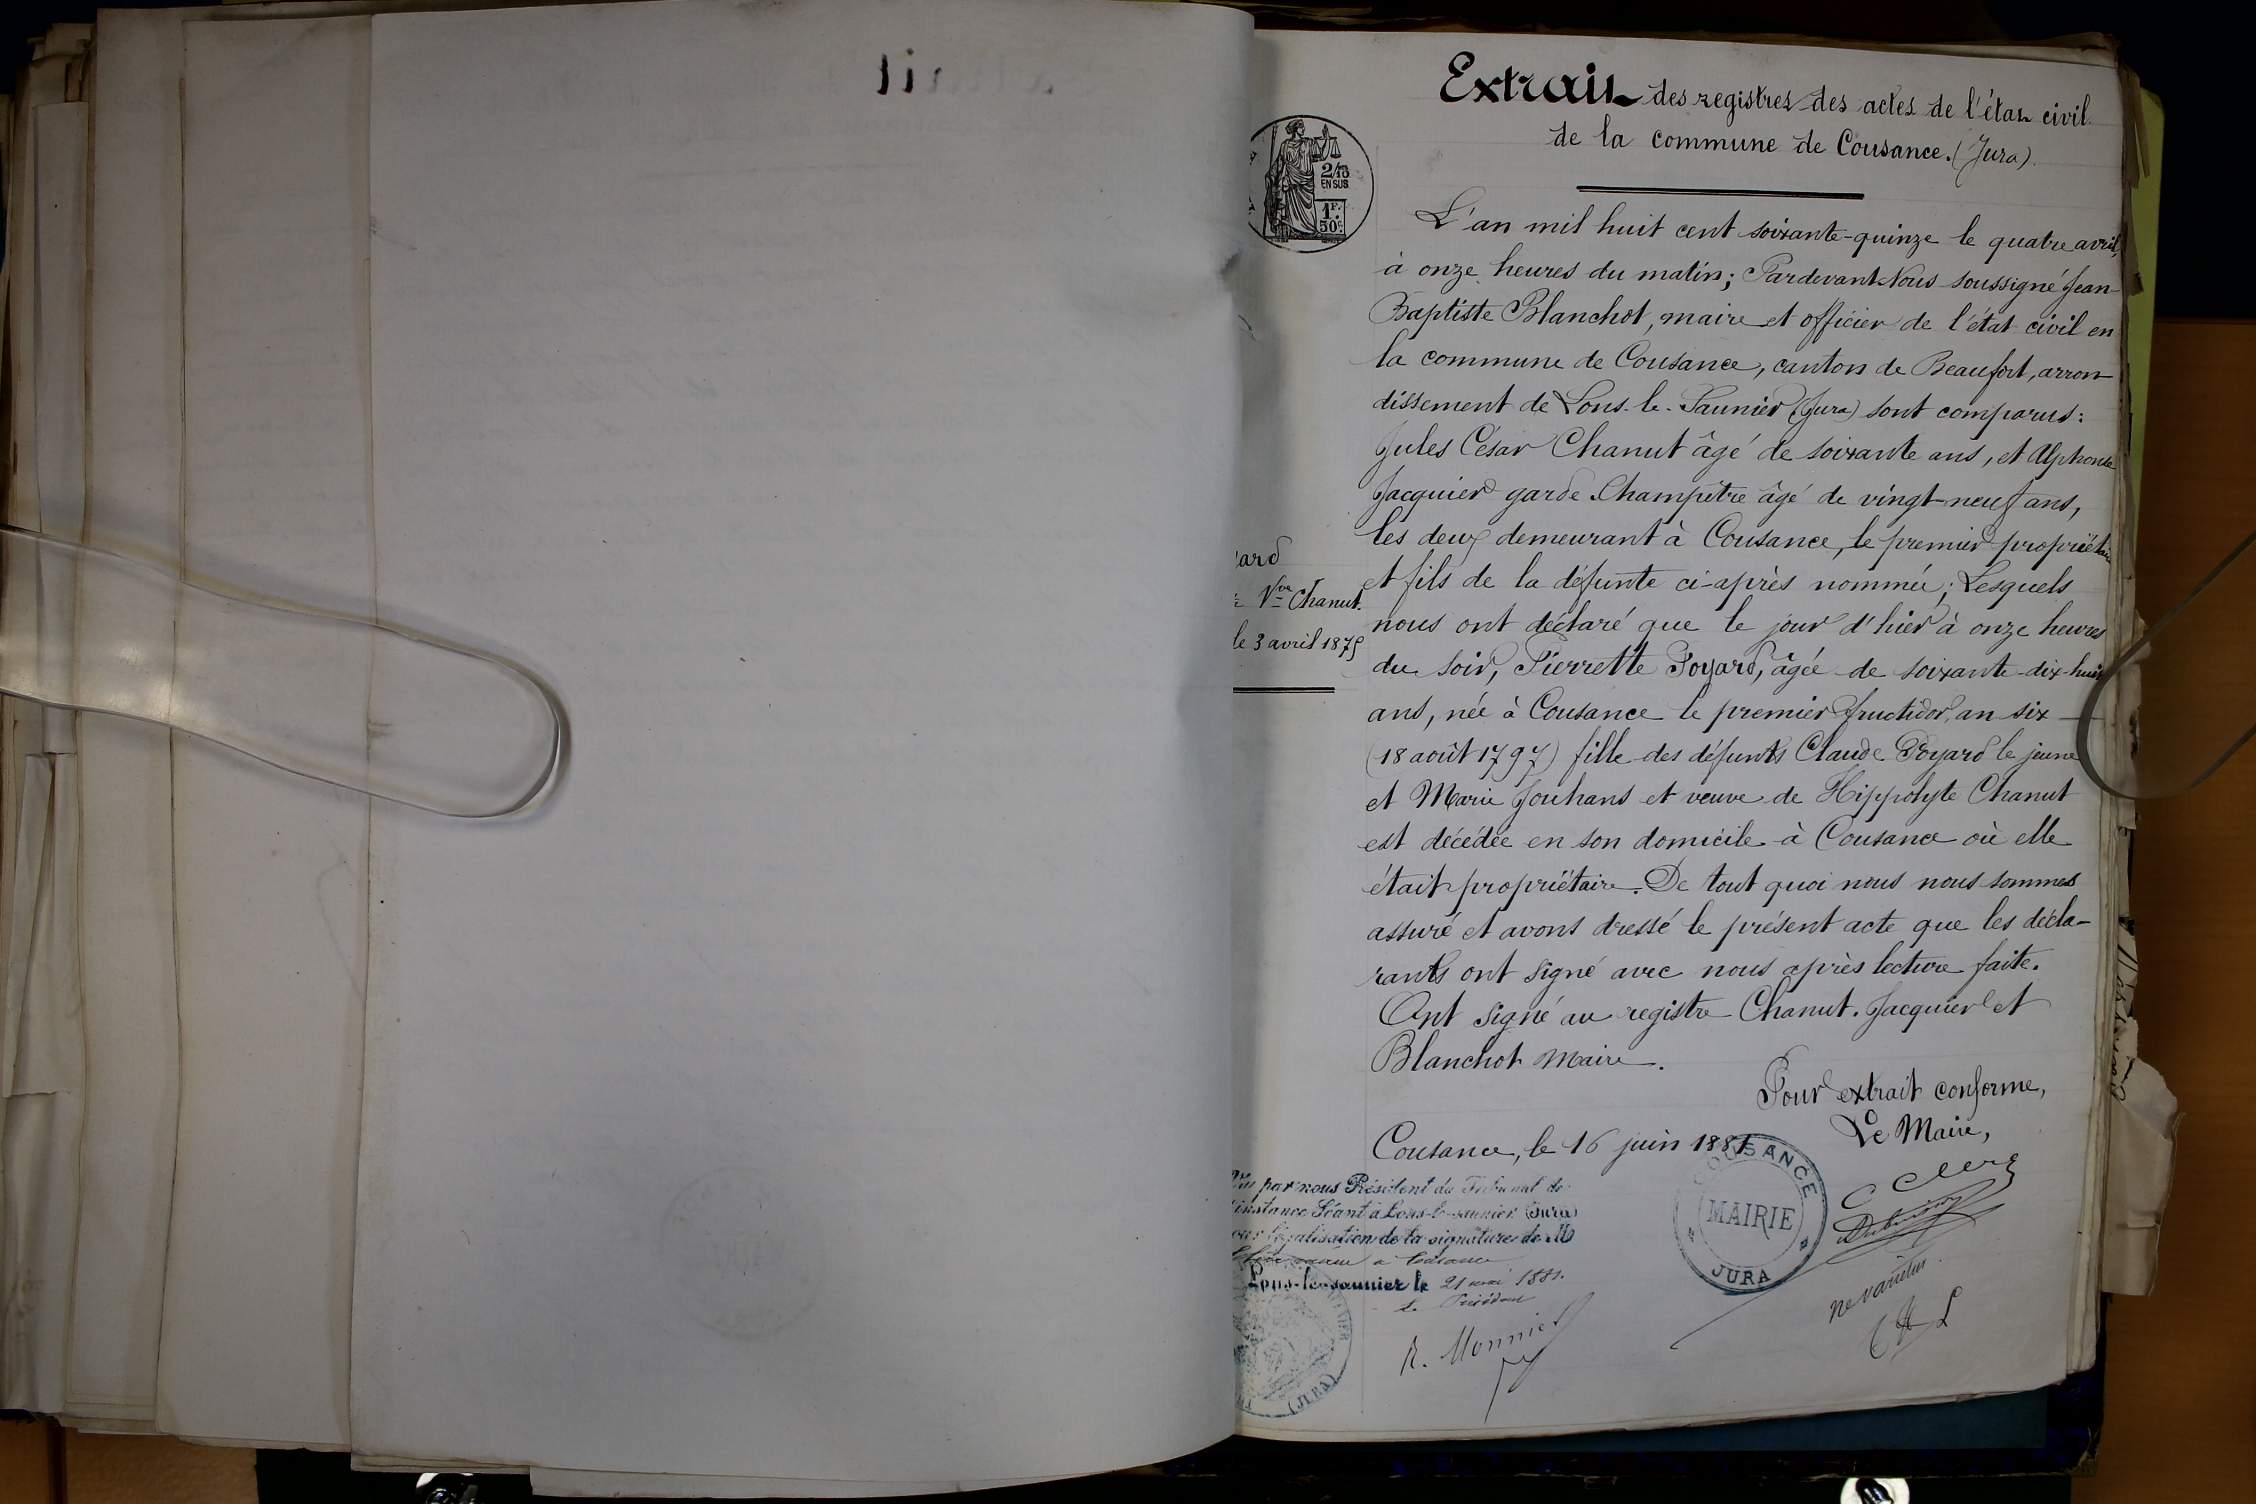 Extrait des registres des actes de l'état civil
de la commune de Cousance. (Jura)
2/10
EN SUS
1F.
50c
L'an mil huit cent soixante-quinze le quatre avril,
à onze heures du matin; Pardevant Nous soussigné Jean-
Baptiste Blanchot, maire et officier de l'état civil en
la commune de Cousance, canton de Beaufort, arron-
dissement de Lons-le-Saunier (Jura) sont comparus:
Jules César Chanut âgé de soixante ans, et Alphonse
Jacquier garde Champêtre âgé de vingt-neuf ans,
les deux demeurant à Cousance, le premier propriétaire
et fils de la défunte ci-après nommée; Lesquels
nous ont déclaré que le jour d'hier à onze heures
du soir, Pierrette Poyard, âgée de soixante-dix-huit
ans, née à Cousance le premier fructidor, an six
(18 août 1797) fille des défunts Claude Poyard le jeune
et Marie Jouhans et veuve de Hippolyte Chanut
est décédée en son domicile à Cousance où elle
était propriétaire. De tout quoi nous nous sommes
assuré et avons dressé le présent acte que les décla-
rants ont signé avec nous après lecture faite.
Ont signé au registre Chanut. Jacquier et
Blanchot Maire.
ard
Vve Chanut.
le 3 avril 1875
Pour extrait conforme,
Le Maire,
Cousance, le 16 juin 1881
COUSANCE
MAIRIE
JURA
Vu par nous Président du Tribunal de
instance Séant à Lons-le-saunier (Jura)
pour légalisation de la signature de M
maire à Cousance
Lons-le-saunier le 21 mai 1881.
le Président
R. Monnier
(JURA)
ne varietur